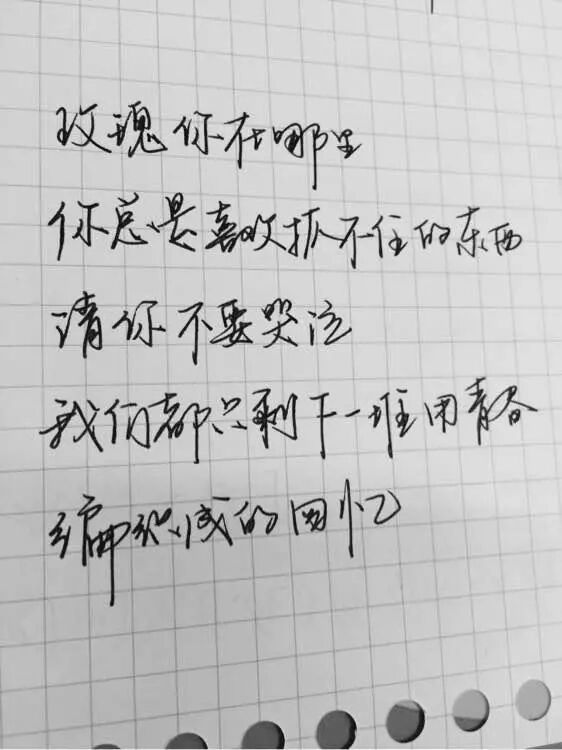 玫瑰你在哪里
你总是喜欢抓不住的东西
请你不要哭泣
我们都只剩下一堆用青春
编织成的回忆